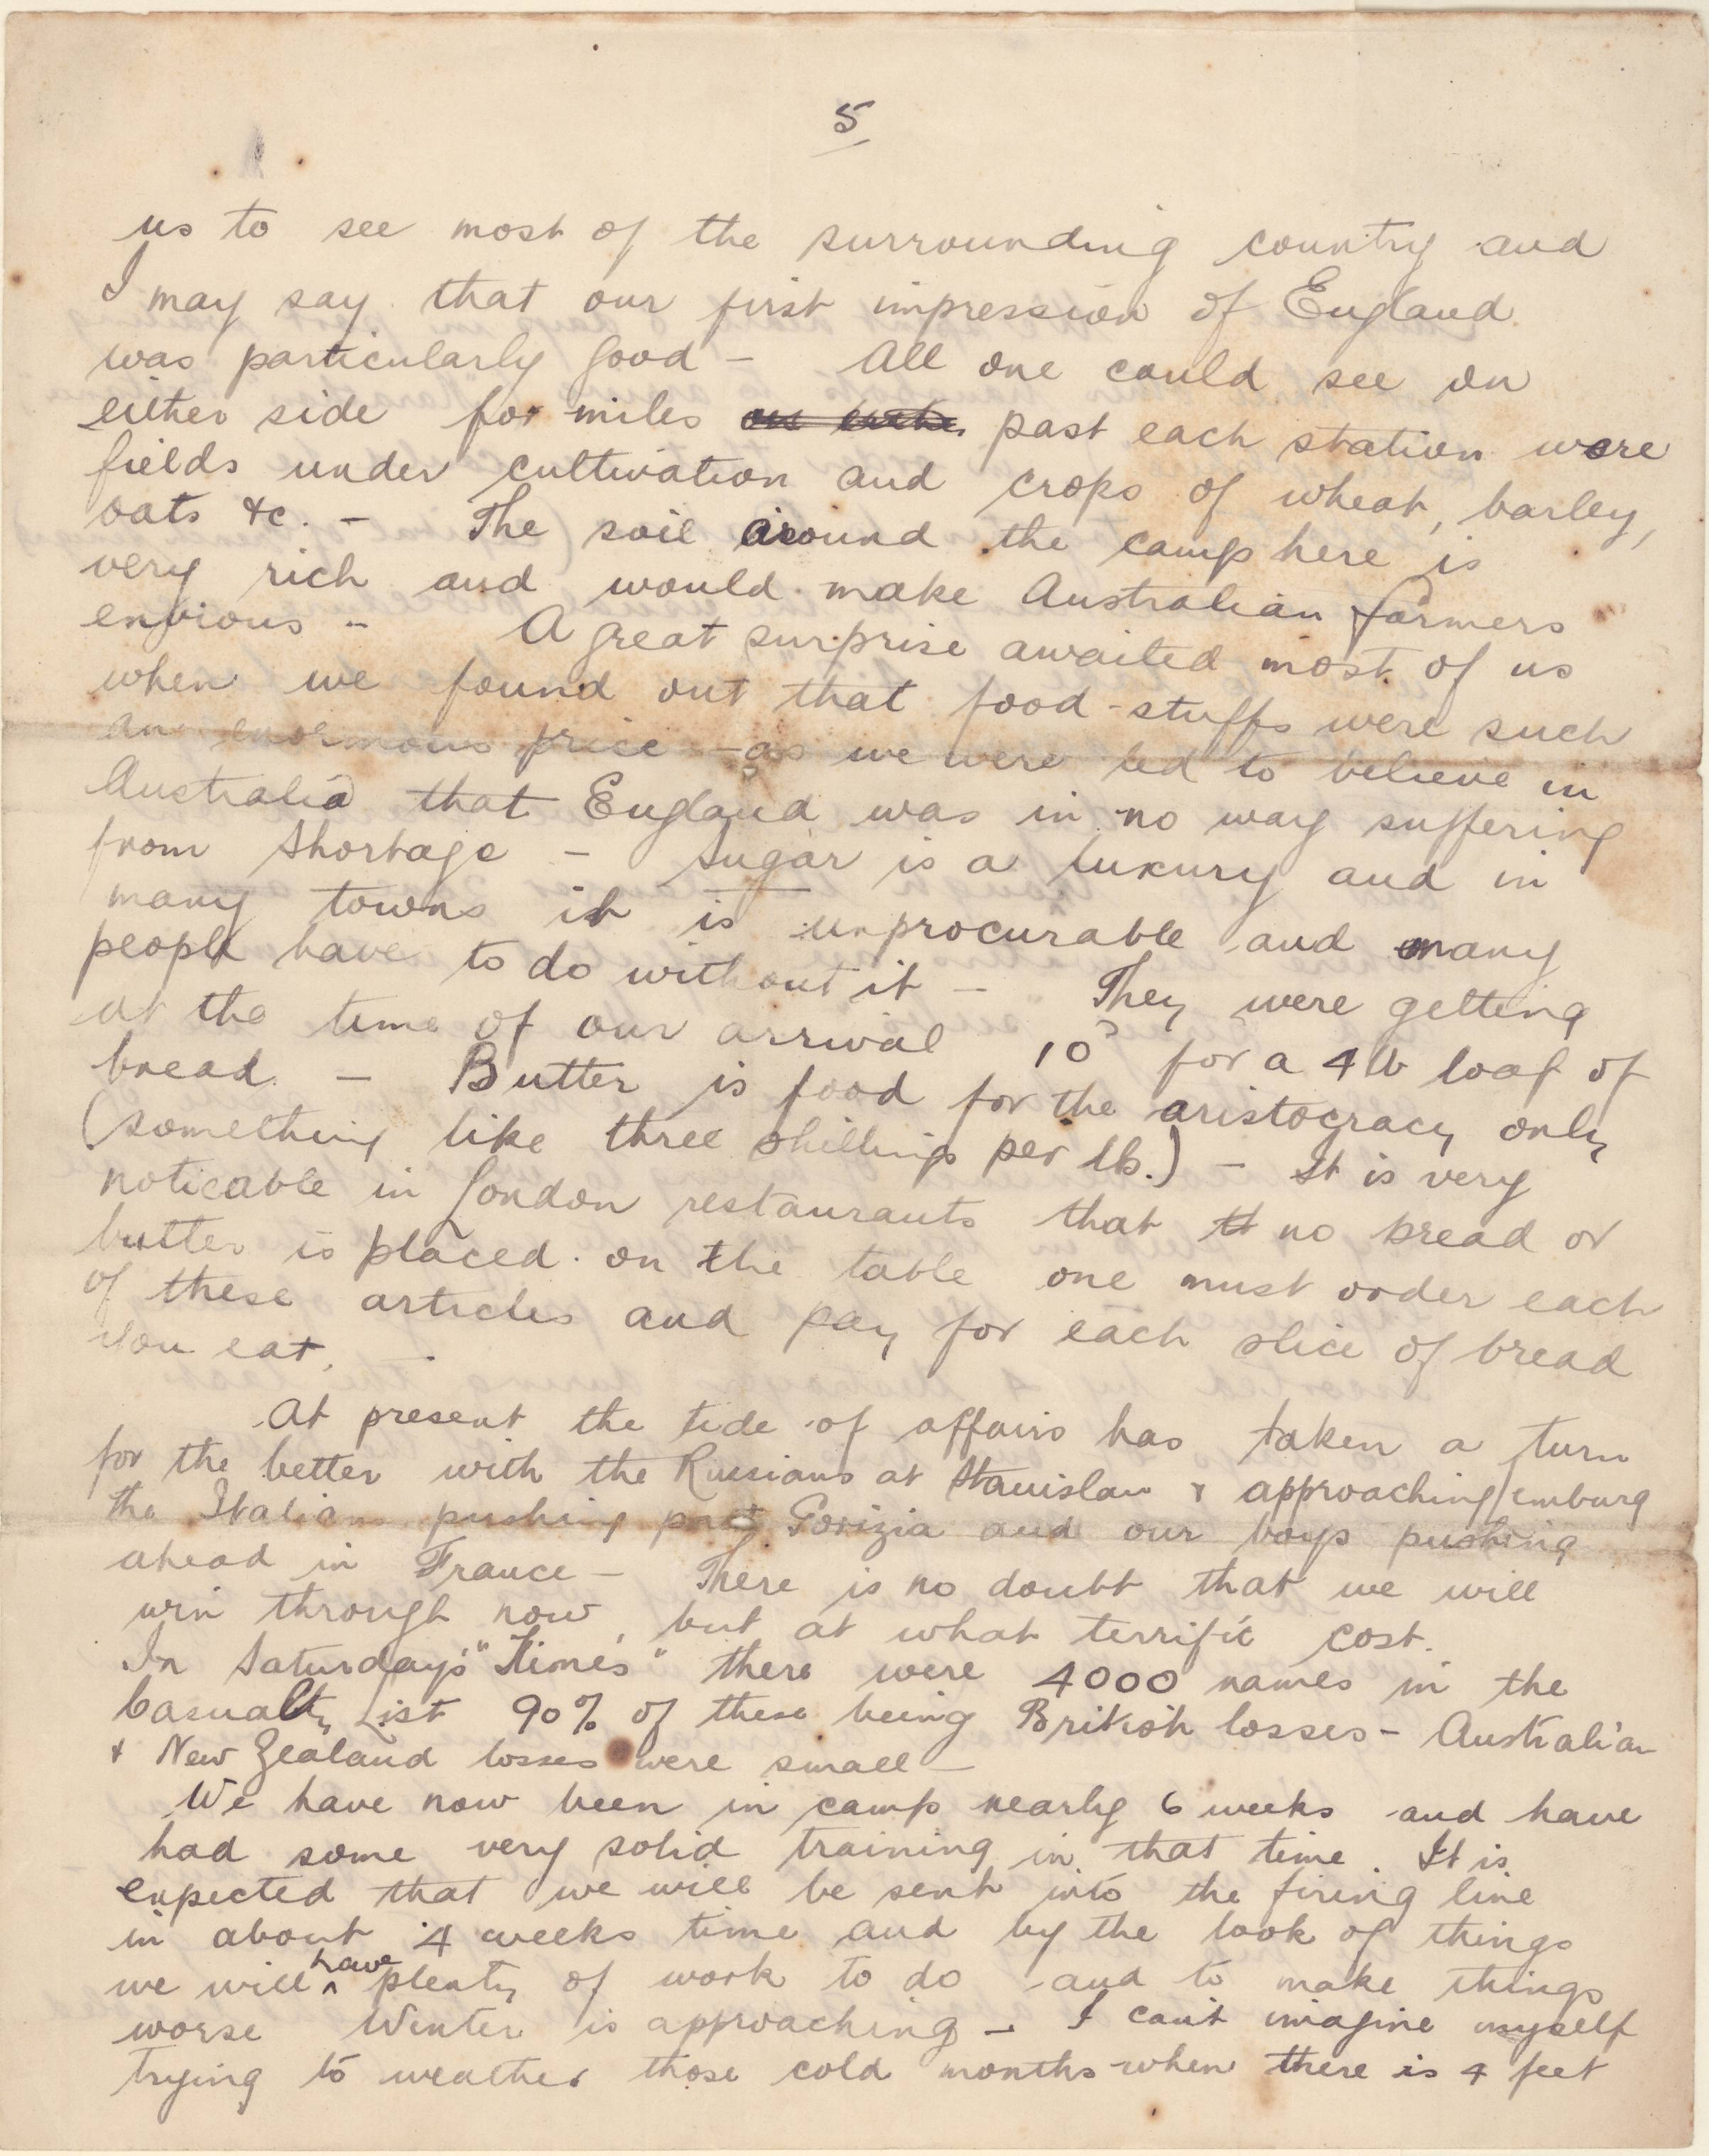 5
us to see most of the surrounding country and
I may say that our first impression of England
was particularly good – All one could see on
either side for miles past each station were
fields under cultivation and crops of wheat, barley,
oats &c. – The soil around the camp here is
very rich and would make Australian farmers
envious – A great surprise awaited most of us
when we found out that food-stuffs were such
an enormous price – as we were led to believe in
Australia that England was in no way suffering
from shortage – Sugar is a luxury and in
many towns it is unprocurable and many
people have to do without it – They were getting
at the time of our arrival 10ᴰ for a 4 lb loaf of
bread. – Butter is food for the aristocracy only
(something like three shillings per lb.) – It is very
noticable in London restaurants that no bread or
butter is placed on the table one must order each
of these articles and pay for each slice of bread
you eat. –
At present the tide of affairs has taken a turn
for the better with the Russians at Stanislau & approaching Lemburg
the Italians pushing past Gorizia and our boys pushing
ahead in France – There is no doubt that we will
win through now, but at what terrific cost.
In Saturday's "Times" there were 4000 names in the
Casualty List 90% of these being British losses – Australian
& New Zealand losses were small –
We have now been in camp nearly 6 weeks and have
had some very solid training in that time. It is
expected that we will be sent into the firing line
in about 4 weeks time and by the look of things
we will have plenty of work to do and to make things
worse Winter is approaching – I can't imagine myself
trying to weather those cold months when there is 4 feet